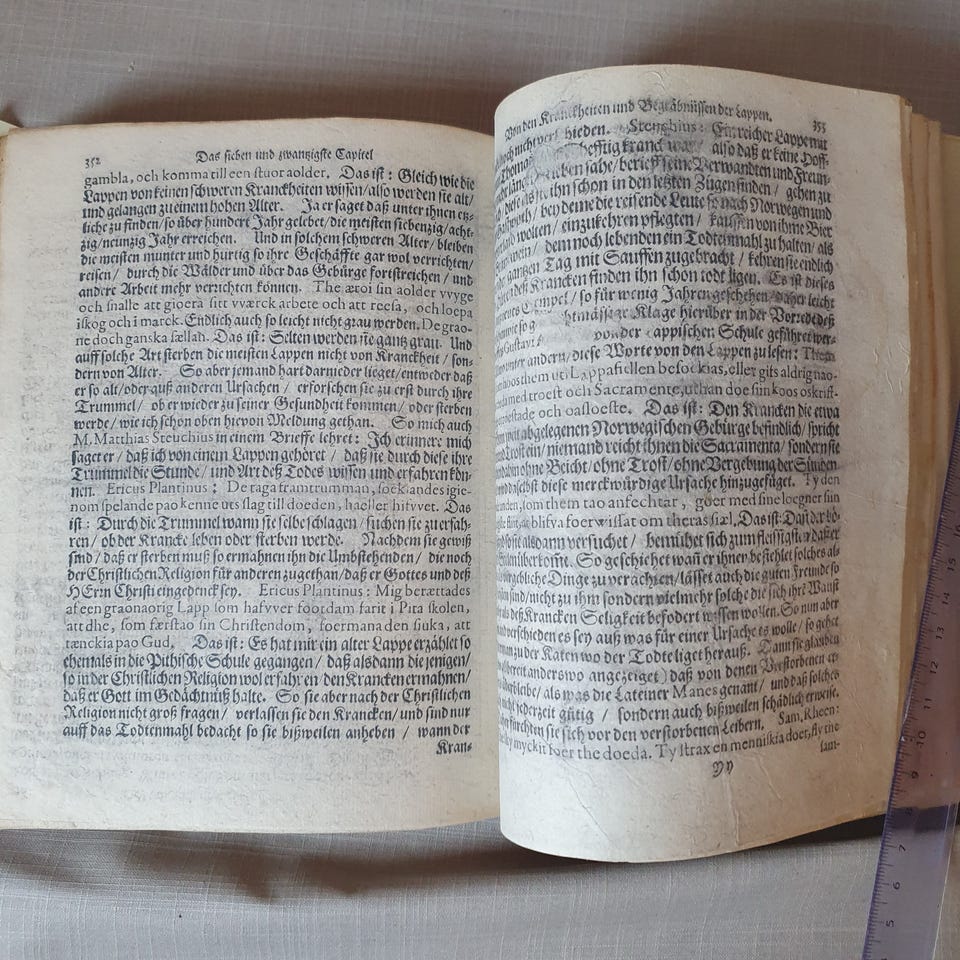 352
Das sieben und zwanzigste Capitel
gambla, och komma till een stuor aolder. Das ist: Gleich wie die
Lappen von keinen schweren Kranckheiten wissen/ also werden sie alt/
und gelangen zu einem hohen Alter. Ja er saget daß unter ihnen etz-
liche zu finden/ so über hundert Jahr gelebet/ die meisten siebenzig/ acht-
zig/ neunzig Jahr erreichen. Und in solchem schweren Alter/ bleiben
die meisten munter und hurtig so ihre Geschäffte gar wol verrichten/
reisen/ durch die Wälder und über das Gebürge fortstreichen/ und
andere Arbeit mehr verrichten können. The æroi sin aolder vvyge
och snalle att gioera sitt vværck arbete och att reesa, och loepa
i skog och i marck. Endlich auch so leicht nicht grau werden. De grao-
ne doch ganska sællah. Das ist: Selten werden sie gantz grau. Und
auff solche Art sterben die meisten Lappen nicht von Kranckheit/ son-
dern von Alter. So aber jemand hart darnieder lieget/ entweder daß
er so alt/ oder auß anderen Ursachen/ erforschen sie zu erst durch ihre
Trummel/ ob er wieder zu seiner Gesundheit kommen/ oder sterben
werde/ wie ich schon oben hievon Meldung gethan. So mich auch
M. Matthias Steuchius in einem Brieffe lehret: Ich erinnere mich
saget er/ daß ich von einem Lappen gehöret/ daß sie durch diese ihre
Trummel die Stunde/ und Art deß Todes wissen und erfahren kön-
nen. Ericus Plantinus: De taga framtrumman, soekiandes igie-
nom spelande pao kenne uts slag till doeden, haeller hifvvet. Das
ist: Durch die Trummel wann sie selbe schlagen/ suchen sie zu erfah-
ren/ ob der Krancke leben oder sterben werde. Nachdem sie gewiß
sind/ daß er sterben muß so ermahnen ihn die Umbstehenden/ die noch
der Christlichen Religion für anderen zugethan/ daß er Gottes und deß
HErrn Christi eingedenck sey. Ericus Plantinus: Mig berættades
af een graonaorig Lapp som hafvver footdam farit i Pita skolen,
att dhe, som færstao sin Christendom, foermana den siuka, att
tænckia pao Gud. Das ist: Es hat mir ein alter Lappe erzählet so
ehemals in die Pithische Schule gegangen/ daß alsdann die jenigen/
so in der Christlichen Religion wol erfahren den Krancken ermahnen/
daß er Gott im Gedächtnüß halte. So sie aber nach der Christlichen
Religion nicht groß fragen/ verlassen sie den Krancken/ und sind nur
auff das Todtenmahl bedacht so sie bißweilen anheben/ wann der
Kran-
Von den Kranckheiten und Begräbnüssen der Lappen.
353
noch nicht verschieden. Steuchius: Ein reicher Lappe mit
Thomas hefftig kranck also daß er keine Hoff-
Leben sahe/ berieff seine Verwandten und Freun-
diese als sie ihn schon in den letzten Zügen finden/ gehen zu
bey deme die reisende Leute so nach Norwegen und
wolten/ einzukehren pflegten/ kauffen von ihme Bier
wein/ dem noch lebenden ein Todtenmahl zu halten/ als
gantzen Tag mit Sauffen zugebracht/ kehren sie endlich
deß Krancken finden ihn schon todt ligen. Es ist dieses
Exempel/ so für wenig Jahren geschehen/ daher leicht
Klage hierüber in der Vorrede deß
Gustavi von der Lappischen Schule geführet wer-
unter andern/ diese Worte von den Lappen zu lesen: Them
hoos them uti Lappafiellen besoekias, eller gifs aldrig nao-
med troest och Sacramente, uthan doe sin koos oskrift-
och oasloeste. Das ist: Den Krancken die etwa
weit abgelegenen Norwegischen Gebürge befindlich/ spricht
Trost ein/ niemand reicht ihnen die Sacramenta/ sondern sie
ohne Beicht/ ohne Trost/ ohne Vergebung der Sünden
und daselbst diese merckwürdige Ursache hinzugefüget. Ty den
som them tao anfechtar, goer med sine loegner sin
blifva foervvissat om theras siæl. Das ist: Dan der bö-
so sie alsdann versuchet/ bemühet sich zum fleissigsten/ daß er
überkome. So geschiehet wan er ihnen befiehlet solches als
vergebliche Dinge zu verachten/ lässet auch die guten Freunde so
sind/ nicht zu ihm sondern vielmehr solche die sich ihre Wanst
als deß Krancken Seligkeit befodert wissen wollen. So nun aber
verschieden es sey auß was für einer Ursache es wolle/ so gehet
man zu der Katen wo der Todte liget herauß. Dann sie glauben
bereit anderswo angezeiget) daß von denen Verstorbenen et-
verbleibe/ als was die Lateiner Manes genant/ und daß solches
nicht jederzeit gütig/ sondern auch bißweilen schädlich erweise.
fürchten sie sich vor den verstorbenen Leibern. Sam. Rheen:
myckit foer the doeda. Ty strax en menniskia doer, fly the
sam-
Yy